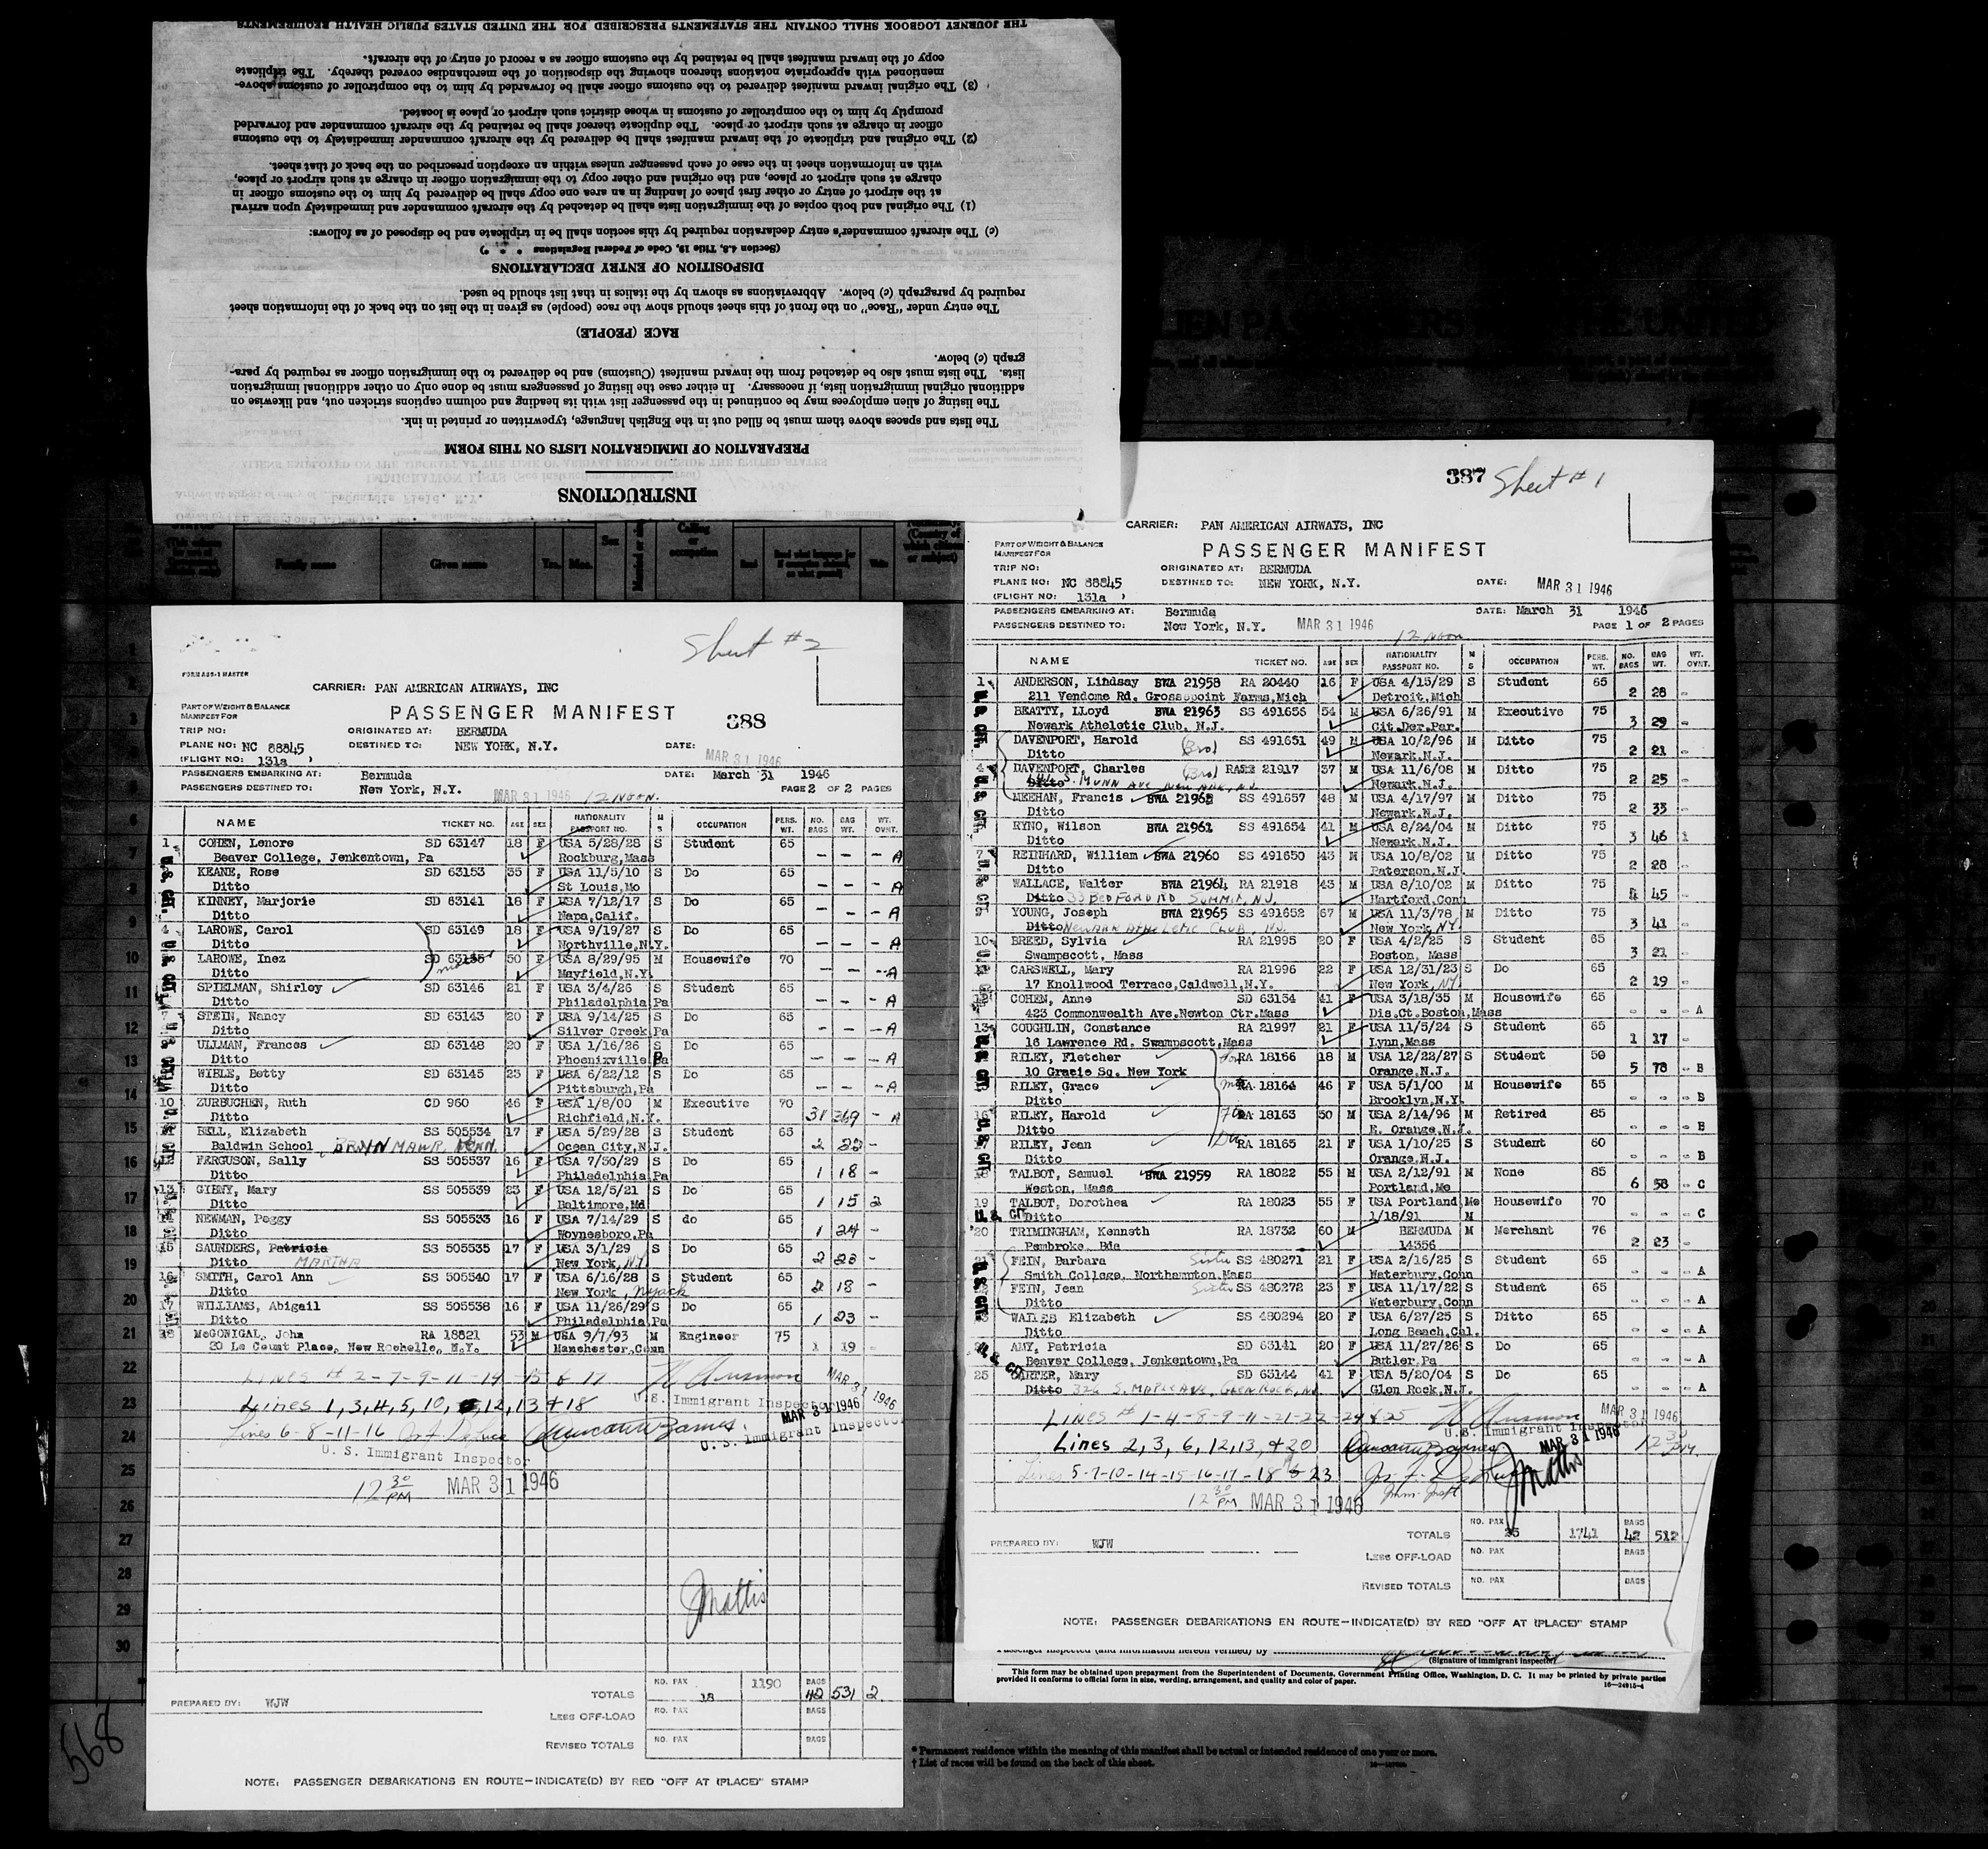 INSTRUCTIONS
PREPARATION OF IMMIGRATION LISTS ON THIS FORM
The lists and spaces above them must be filled out in the English language, typewritten or printed in ink.
The listing of alien employees may be continued in the passenger list with its heading and column captions stricken out, and likewise on
additional original immigration lists, if necessary. In either case the listing of passengers must be done only on other additional immigration
lists. The lists must also be detached from the inward manifest (Customs) and be delivered to the immigration officer as required by para-
graph (c) below.
RACE (PEOPLE)
The entry under "Race" on the front of this sheet should show the race (people) as given in the list on the back of the information sheet
required by paragraph (c) below. Abbreviations as shown by the italics in that list should be used.
DISPOSITION OF ENTRY DECLARATIONS
(Section 4.8, Title 19, Code of Federal Regulations * * *)
(c) The aircraft commander's entry declaration required by this section shall be in triplicate and be disposed of as follows:
(1) The original and both copies of the immigration lists shall be detached by the aircraft commander and immediately upon arrival
at the airport of entry or other first place of landing in an area one copy shall be delivered by him to the customs officer in
charge at such airport or place, and the original and other copy to the immigration officer in charge at such airport or place,
with an information sheet in the case of each passenger unless within an exception prescribed on the back of that sheet.
(2) The original and triplicate of the inward manifest shall be delivered by the aircraft commander immediately to the customs
officer in charge at such airport or place. The duplicate thereof shall be retained by the aircraft commander and forwarded
promptly by him to the comptroller of customs in whose district such airport or place is located.
(3) The original inward manifest delivered to the customs officer shall be forwarded by him to the comptroller of customs above-
mentioned with appropriate notations thereon showing the disposition of the merchandise covered thereby. The triplicate
copy of the inward manifest shall be retained by the customs officer as a record of entry of the aircraft.
THE JOURNEY LOGBOOK SHALL CONTAIN THE STATEMENTS PRESCRIBED FOR THE UNITED STATES PUBLIC HEALTH REQUIREMENTS
Family name Given name Yrs. Mos. Sex Calling or occupation
Sheet #2
FORM ADS-1 MASTER
CARRIER: PAN AMERICAN AIRWAYS, INC
PART OF WEIGHT & BALANCE
MANIFEST FOR
PASSENGER MANIFEST 388
TRIP NO: ORIGINATED AT: BERMUDA
PLANE NO: NC 88845 DESTINED TO: NEW YORK, N.Y. DATE: MAR 31 1946
(FLIGHT NO: 131a )
PASSENGERS EMBARKING AT: Bermuda DATE: March 31 1946
PASSENGERS DESTINED TO: New York, N.Y. MAR 31 1946 12 NOON. PAGE 2 OF 2 PAGES
NAME TICKET NO. AGE SEX NATIONALITY PASSPORT NO. M S OCCUPATION PERS. WT. NO. BAGS BAG WT. WT. OVNT.
1 COHEN, Lenore SD 63147 18 F USA 5/28/28 S Student 65
Beaver College, Jenkentown, Pa Rockburg,Mass - - - A
KEANE, Rose SD 63153 35 F USA 11/5/10 S Do 65
Ditto St Louis,Mo - - - A
KINNEY, Marjorie SD 63141 18 F USA 7/12/17 S Do 65
Ditto Napa,Calif. - - - A
4 LAROWE, Carol SD 63149 18 F USA 9/19/27 S Do 65
Ditto Northville,N.Y. - - - A
LAROWE, Inez SD 63155 50 F USA 8/29/95 M Housewife 70
Ditto mother Mayfield,N.Y. - - - A
SPIELMAN, Shirley SD 63146 21 F USA 3/4/26 S Student 65
Ditto Philadelphia,Pa - - - A
7 STEIN, Nancy SD 63143 20 F USA 9/14/25 S Do 65
Ditto Silver Creek,Pa - - - A
ULLMAN, Frances SD 63148 20 F USA 1/16/26 S Do 65
Ditto Phoenixville Pa - - - A
WIBLE, Betty SD 63145 23 F USA 6/22/12 S Do 65
Ditto Pittsburgh,Pa - - - A
10 ZURBUCHEN, Ruth CD 960 46 F USA 1/8/00 M Executive 70
Ditto Richfield,N.Y. 31 369 - A
BELL, Elizabeth SS 505534 17 F USA 5/29/28 S Student 65
Baldwin School, BRYN MAWR, PENN. Ocean City,N.J. 2 22 -
FERGUSON, Sally SS 505537 16 F USA 7/30/29 S Do 65
Ditto Philadelphia Pa 1 18 -
13 GIBNY, Mary SS 505539 23 F USA 12/5/21 S Do 65
Ditto Baltimore,Md 1 15 2
NEWMAN, Peggy SS 505533 16 F USA 7/14/29 S do 65
Ditto Woynesboro,Pa 1 24 -
15 SAUNDERS, Patricia SS 505535 17 F USA 3/1/29 S Do 65
Ditto MARTHA New York, NY 2 23 -
16 SMITH, Carol Ann SS 505540 17 F USA 6/16/28 S Student 65
Ditto New York, Nyack 2 18 -
17 WILLIAMS, Abigail SS 505538 16 F USA 11/26/29 S Do 65
Ditto Philadelphia,Pa 1 23 -
18 McGONIGAL, John RA 18821 53 M USA 9/7/93 M Engineer 75
20 Le Count Place, New Rochelle, N.Y. Manchester,Conn 1 19 -
LINES # 2-7-9-11-14-15 & 17 MAR 31 1946
U.S. Immigrant Inspector
Lines 1,3,4,5,10, 12,13 & 18 MAR 31 1946
Lines 6-8-11-16 U.S. Immigrant Inspector
U.S. Immigrant Inspector
12 30 PM MAR 31 1946
J Mattis
TOTALS NO. PAX 18 1190 BAGS 42 531 2
PREPARED BY: WJW
LESS OFF-LOAD NO. PAX BAGS
REVISED TOTALS NO. PAX BAGS
NOTE: PASSENGER DEBARKATIONS EN ROUTE—INDICATE(D) BY RED "OFF AT (PLACE)" STAMP
568
387 Sheet #1
CARRIER: PAN AMERICAN AIRWAYS, INC
PART OF WEIGHT & BALANCE
MANIFEST FOR
PASSENGER MANIFEST
TRIP NO: ORIGINATED AT: BERMUDA
PLANE NO: NC 88845 DESTINED TO: NEW YORK, N.Y. DATE: MAR 31 1946
(FLIGHT NO: 131a )
PASSENGERS EMBARKING AT: Bermuda DATE: March 31 1946
PASSENGERS DESTINED TO: New York, N.Y. MAR 31 1946 12 NOON PAGE 1 OF 2 PAGES
NAME TICKET NO. AGE SEX NATIONALITY PASSPORT NO. M S OCCUPATION PERS. WT. NO. BAGS BAG WT. WT. OVNT.
1 ANDERSON, Lindsay BWA 21958 RA 20440 16 F USA 4/15/29 S Student 65
211 Vendome Rd. Grossepoint Farms,Mich Detroit,Mich 2 28 -
BEATTY, LLoyd BWA 21963 SS 491656 54 M USA 6/26/91 M Executive 75
Newark Atheletic Club, N.J. Cit.Der.Par. 3 29 -
DAVENPORT, Harold (Bro) SS 491651 49 M USA 10/2/96 M Ditto 75
Ditto Newark,N.J. 2 21 -
4 DAVENPORT, Charles (Bro) RA 21917 37 M USA 11/6/08 M Ditto 75
Ditto S. MUNN AVE NEWARK, N.J. Newark,N.J. 2 25 -
MEEHAN, Francis BWA 21962 SS 491657 48 M USA 4/17/97 M Ditto 75
Ditto Newark,N.J. 2 33 -
RYNO, Wilson BWA 21961 SS 491654 41 M USA 8/24/04 M Ditto 75
Ditto Newark,N.J. 3 46 1
7 REINHARD, William BWA 21960 SS 491650 43 M USA 10/8/02 M Ditto 75
Ditto Paterson,N.J. 2 28 -
WALLACE, Walter BWA 21964 RA 21918 43 M USA 8/10/02 M Ditto 75
Ditto 33 BEDFORD RD SUMMIT, N.J. Hartford,Conn 4 45 -
9 YOUNG, Joseph BWA 21965 SS 491652 67 M USA 11/3/78 M Ditto 75
Ditto NEWARK ATHELETIC CLUB, N.J. New York,NY. 3 41 -
10 BREED, Sylvia RA 21995 20 F USA 4/2/25 S Student 65
Swampscott, Mass Boston, Mass 3 21 -
CARSWELL, Mary RA 21996 22 F USA 12/31/23 S Do 65
17 Knollwood Terrace,Caldwell,N.Y. New York, NY. 2 19 -
12 COHEN, Anne SD 63154 41 F USA 3/18/35 M Housewife 65
423 Commonwealth Ave.Newton Ctr.Mass Dis.Ct.Boston,Mass - - - A
13 COUGHLIN, Constance RA 21997 21 F USA 11/5/24 S Student 65
16 Lawrence Rd. Swampscott,Mass Lynn,Mass 1 17 -
RILEY, Fletcher RA 18166 18 M USA 12/22/27 S Student 50
10 Gracie Sq. New York Orange,N.J. 5 78 - B
RILEY, Grace RA 18164 46 F USA 5/1/00 M Housewife 55
Ditto Brooklyn,N.Y. - - - B
16 RILEY, Harold RA 18163 50 M USA 2/14/96 M Retired 85
Ditto E. Orange,N.J. - - - B
17 RILEY, Jean RA 18165 21 F USA 1/10/25 S Student 60
Ditto Orange,N.J. - - - B
18 TALBOT, Samuel BWA 21959 RA 18022 55 M USA 2/12/91 M None 85
Weston, Mass Portland,Me 6 58 - C
19 TALBOT, Dorothea RA 18023 55 F USA Portland Me Housewife 70
Ditto 1/18/91 M - - - C
20 TRIMINGHAM, Kenneth RA 18732 60 M BERMUDA M Merchant 76
Pembroke, Bda 14356 2 23 -
21 FEIN, Barbara Sister SS 480271 21 F USA 2/16/25 S Student 65
Smith College, Northampton,Mass Waterbury,Conn - - - A
FEIN, Jean Sister SS 480272 23 F USA 11/17/22 S Student 65
Ditto Waterbury,Conn - - - A
Elizabeth SS 480294 20 F USA 6/27/25 S Ditto 65
Ditto Long Beach,Cal. - - - A
AMY, Patricia SD 63141 20 F USA 11/27/26 S Do 65
Beaver College, Jenkentown,Pa Butler,Pa - - - A
25 CARTER, Mary SD 63144 41 F USA 5/20/04 S Do 65
Ditto 326 S. MAPLE AVE, GLEN ROCK, NJ Glen Rock,N.J. - - - A
LINES # 1-4-8-9-11-21-22-24 & 25 MAR 31 1946
U.S. Immigrant Inspector
Lines 2,3,6,12,13, & 20 MAR 31 1946 12 30 PM
Lines 5-7-10-14-15-16-17-18 23
Imm. Inspt
12 30 PM MAR 31 1946
Mattis
TOTALS NO. PAX 25 1741 BAGS 42 512
PREPARED BY: WJW
LESS OFF-LOAD NO. PAX BAGS
REVISED TOTALS NO. PAX BAGS
NOTE: PASSENGER DEBARKATIONS EN ROUTE—INDICATE(D) BY RED "OFF AT (PLACE)" STAMP
Passenger inspected (and information hereon verified) by
(Signature of immigrant inspector)
This form may be obtained upon prepayment from the Superintendent of Documents, Government Printing Office, Washington, D. C. It may be printed by private parties
provided it conforms to official form in size, wording, arrangement, and quality and color of paper.
16—24915-4
* Permanent residence within the meaning of this manifest shall be actual or intended residence of one year or more.
† List of races will be found on the back of this sheet.